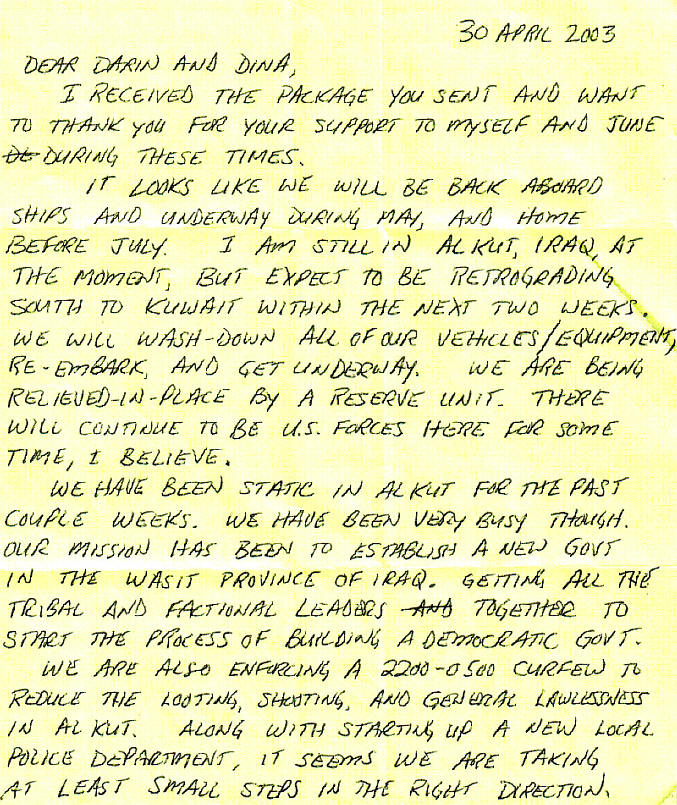 30 APRIL 2003
DEAR DARIN AND DINA,
I RECEIVED THE PACKAGE YOU SENT AND WANT
TO THANK YOU FOR YOUR SUPPORT TO MYSELF AND JUNE
DE DURING THESE TIMES.
IT LOOKS LIKE WE WILL BE BACK ABOARD
SHIPS AND UNDERWAY DURING MAY, AND HOME
BEFORE JULY. I AM STILL IN AL KUT, IRAQ, AT
THE MOMENT, BUT EXPECT TO BE RETROGRADING
SOUTH TO KUWAIT WITHIN THE NEXT TWO WEEKS.
WE WILL WASH-DOWN ALL OF OUR VEHICLES/EQUIPMENT,
RE-EMBARK, AND GET UNDERWAY. WE ARE BEING
RELIEVED-IN-PLACE BY A RESERVE UNIT. THERE
WILL CONTINUE TO BE U.S. FORCES HERE FOR SOME
TIME, I BELIEVE.
WE HAVE BEEN STATIC IN AL KUT FOR THE PAST
COUPLE WEEKS. WE HAVE BEEN VERY BUSY THOUGH.
OUR MISSION HAS BEEN TO ESTABLISH A NEW GOVT
IN THE WASIT PROVINCE OF IRAQ. GETTING ALL THE
TRIBAL AND FACTIONAL LEADERS AND TOGETHER TO
START THE PROCESS OF BUILDING A DEMOCRATIC GOVT.
WE ARE ALSO ENFORCING A 2200-0500 CURFEW TO
REDUCE THE LOOTING, SHOOTING, AND GENERAL LAWLESSNESS
IN AL KUT. ALONG WITH STARTING UP A NEW LOCAL
POLICE DEPARTMENT, IT SEEMS WE ARE TAKING
AT LEAST SMALL STEPS IN THE RIGHT DIRECTION.